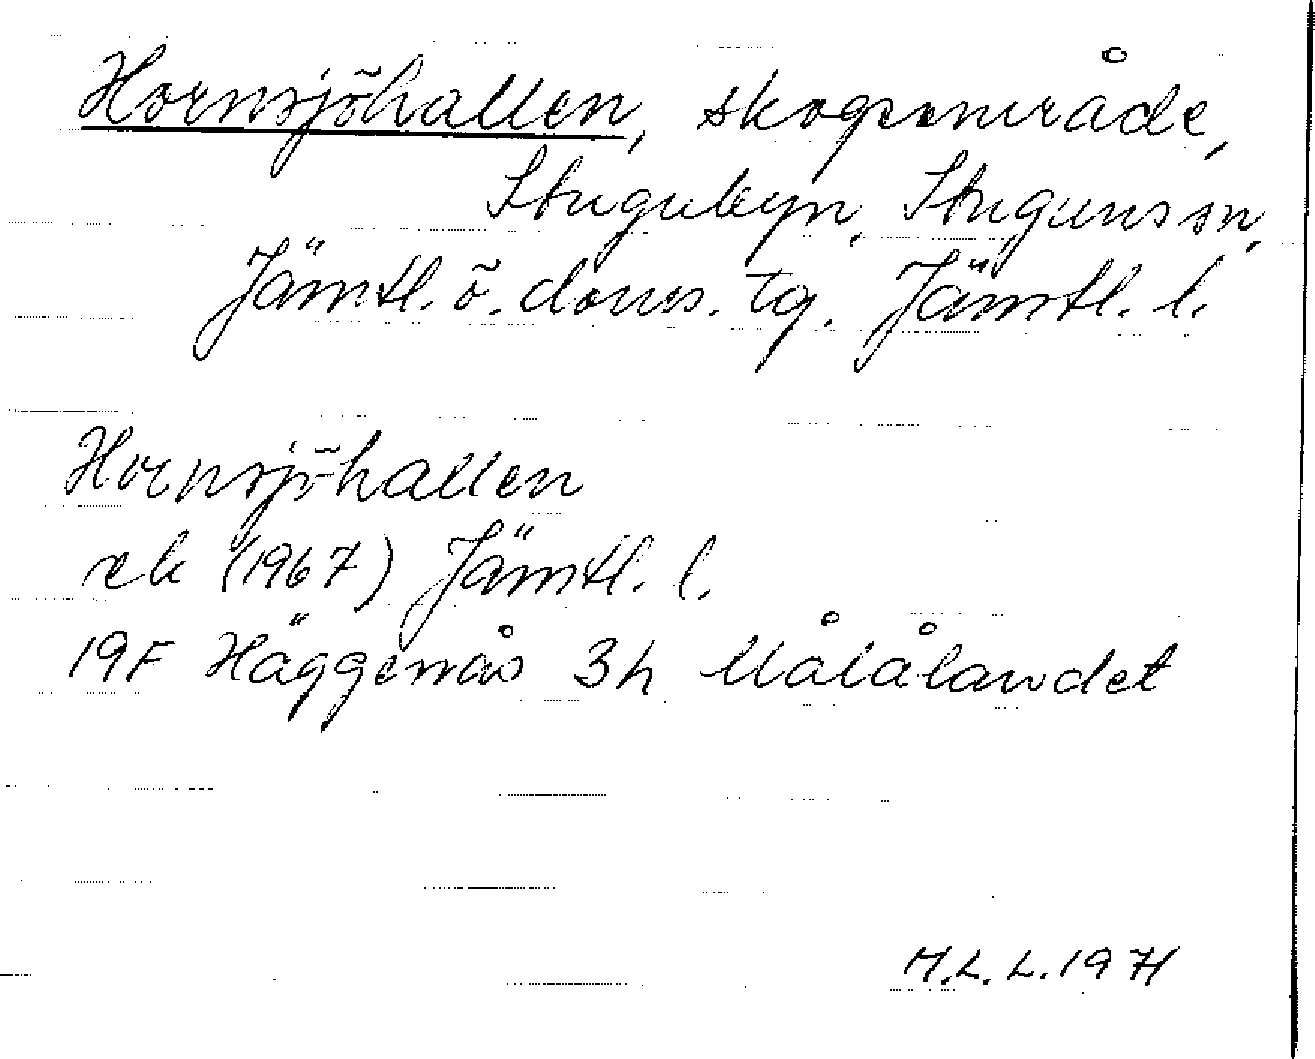 Hornsjöhallen, skogsområde,
Stugubyn, Stuguns sn,
Jämtl. ö. doms. tg. Jämtl. l.
Hornsjöhallen
ek (1967) Jämtl. l.
19F Häggenås 3h Målålandet
M.L.L. 1971